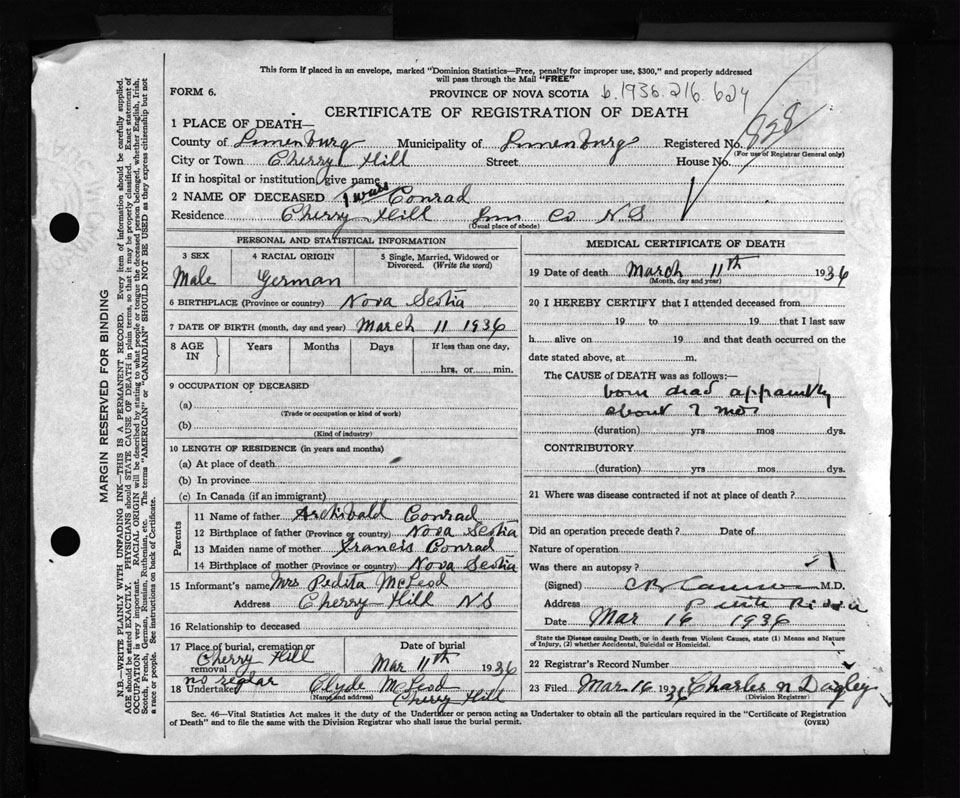 This form if placed in an envelope, marked "Dominion Statistics—Free, penalty for improper use, $300," and properly addressed
will pass through the Mail "FREE"
FORM 6. PROVINCE OF NOVA SCOTIA b.1936.216.624
CERTIFICATE OF REGISTRATION OF DEATH
1 PLACE OF DEATH—
County of Lunenburg Municipality of Lunenburg Registered No. 828
(For use of Registrar General only)
City or Town Cherry Hill Street House No.
If in hospital or institution, give name
2 NAME OF DECEASED Conrad
Residence Cherry Hill Lun Co N S
(Usual place of abode)
PERSONAL AND STATISTICAL INFORMATION
3 SEX 4 RACIAL ORIGIN 5 Single, Married, Widowed or Divorced. (Write the word)
Male German
6 BIRTHPLACE (Province or country) Nova Scotia
7 DATE OF BIRTH (month, day and year) March 11 1936
8 AGE IN Years Months Days If less than one day,
hrs. or min.
9 OCCUPATION OF DECEASED
(a)
(Trade or occupation or kind of work)
(b)
(Kind of industry)
10 LENGTH OF RESIDENCE (in years and months)
(a) At place of death
(b) In province
(c) In Canada (if an immigrant)
Parents
11 Name of father Archibald Conrad
12 Birthplace of father (Province or country) Nova Scotia
13 Maiden name of mother Francis Conrad
14 Birthplace of mother (Province or country) Nova Scotia
15 Informant's name Mrs Pedita McLeod
Address Cherry Hill N S
16 Relationship to deceased
17 Place of burial, cremation or removal Date of burial
Cherry Hill Mar 11th 1936
no reglar
18 Undertaker Clyde McLeod
(Name and address) Cherry Hill
MEDICAL CERTIFICATE OF DEATH
19 Date of death March 11th 1936
(Month, day and year)
20 I HEREBY CERTIFY that I attended deceased from
19 to 19 that I last saw
h alive on 19 and that death occurred on the
date stated above, at m.
The CAUSE of DEATH was as follows:—
born dead apparently
about 7 mos
(duration) yrs mos dys.
CONTRIBUTORY
(duration) yrs mos dys.
21 Where was disease contracted if not at place of death?
Did an operation precede death? Date of
Nature of operation
Was there an autopsy?
(Signed) M.D.
Address Petite Riviere
Date Mar 16 1936
State the Disease causing Death, or in death from Violent Causes, state (1) Means and Nature
of Injury, (2) whether Accidental, Suicidal or Homicidal.
22 Registrar's Record Number
23 Filed Mar 16 1936 Charles N Dagley
(Division Registrar)
Sec. 46—Vital Statistics Act makes it the duty of the Undertaker or person acting as Undertaker to obtain all the particulars required in the "Certificate of Registration
of Death" and to file the same with the Division Registrar who shall issue the burial permit. (OVER)
MARGIN RESERVED FOR BINDING
N.B.—WRITE PLAINLY WITH UNFADING INK—THIS IS A PERMANENT RECORD. Every item of information should be carefully supplied.
AGE should be stated EXACTLY. PHYSICIANS should STATE CAUSE OF DEATH in plain terms, so that it may be properly classified. Exact statement of
OCCUPATION is very important. RACIAL ORIGIN will be described by stating to what people or tongue the deceased person belonged, whether English, Irish,
Scotch, French, German, Russian, Ruthenian, etc. The terms "AMERICAN" or "CANADIAN" SHOULD NOT BE USED as they express citizenship but not
a race or people. See instructions on back of Certificate.